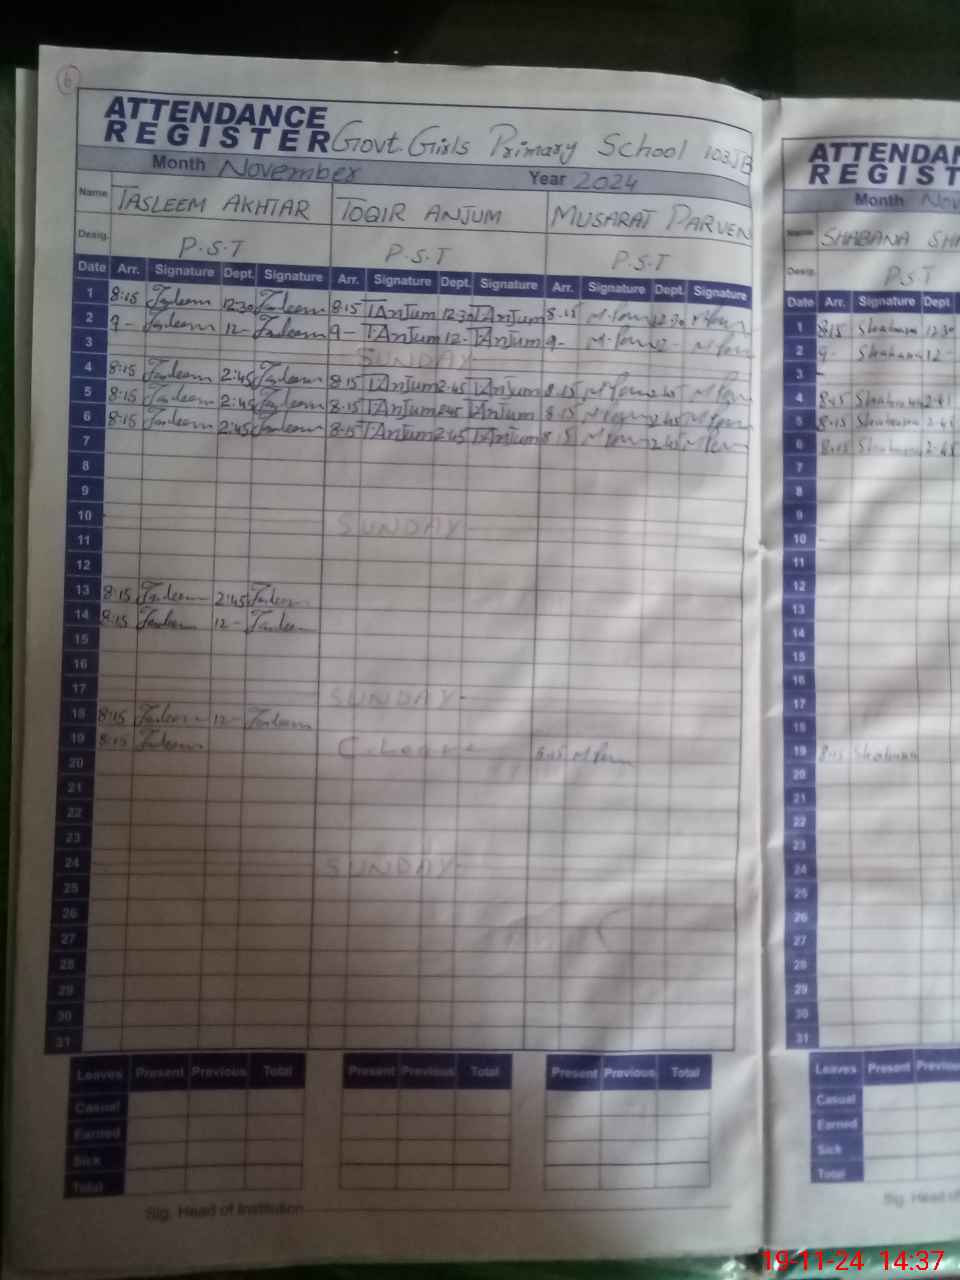 6
ATTENDANCE
REGISTER Govt. Girls Primary School 103JB
Month November Year 2024
Name TASLEEM AKHTAR TOQIR ANJUM MUSARAT PARVEN
Desig. P.S.T P.S.T P.S.T
Date Arr. Signature Dept. Signature Arr. Signature Dept. Signature Arr. Signature Dept. Signature
1 8:15 Tasleem 12:30 Tasleem 8:15 TAnJum 12:30 TAnJum 8:15 12:30
2 9- Tasleem 12- Tasleem 9- TAnJum 12- TAnJum 9-
3 SUNDAY
4 8:15 Tasleem 2:45 Tasleem 8:15 TAnJum 2:45 TAnJum 8:15 2:45
5 8:15 Tasleem 2:45 Tasleem 8:15 TAnJum 2:45 TAnJum 8:15 2:45
6 8:15 Tasleem 2:45 Tasleem 8:15 TAnJum 2:45 TAnJum 8:15 2:45
7
8
9
10 SUNDAY
11
12
13 8:15 Tasleem 2:45 Tasleem
14 8:15 Tasleem 12- Tasleem
15
16
17 SUNDAY
18 8:15 Tasleem 12- Tasleem
19 8:15 Tasleem C.Leave 8:15
20
21
22
23
24 SUNDAY
25
26
27
28
29
30
31
Leaves Present Previous Total Present Previous Total Present Previous Total
Casual
Earned
Sick
Total
Sig. Head of Institution
ATTENDAN
REGIST
Month Nov
Name SHABANA SHA
Desig. P.S.T
Date Arr. Signature Dept.
1 8:15 Shabana 12:30
2 9- Shabana 12-
3
4 8:15 Shabana 2:45
5 8:15 Shabana 2:45
6 8:15 Shabana 2:45
7
8
9
10
11
12
13
14
15
16
17
18
19 8:15 Shabana
20
21
22
23
24
25
26
27
28
29
30
31
Leaves Present Previous
Casual
Earned
Sick
Total
Sig. Head of
19-11-24 14:37